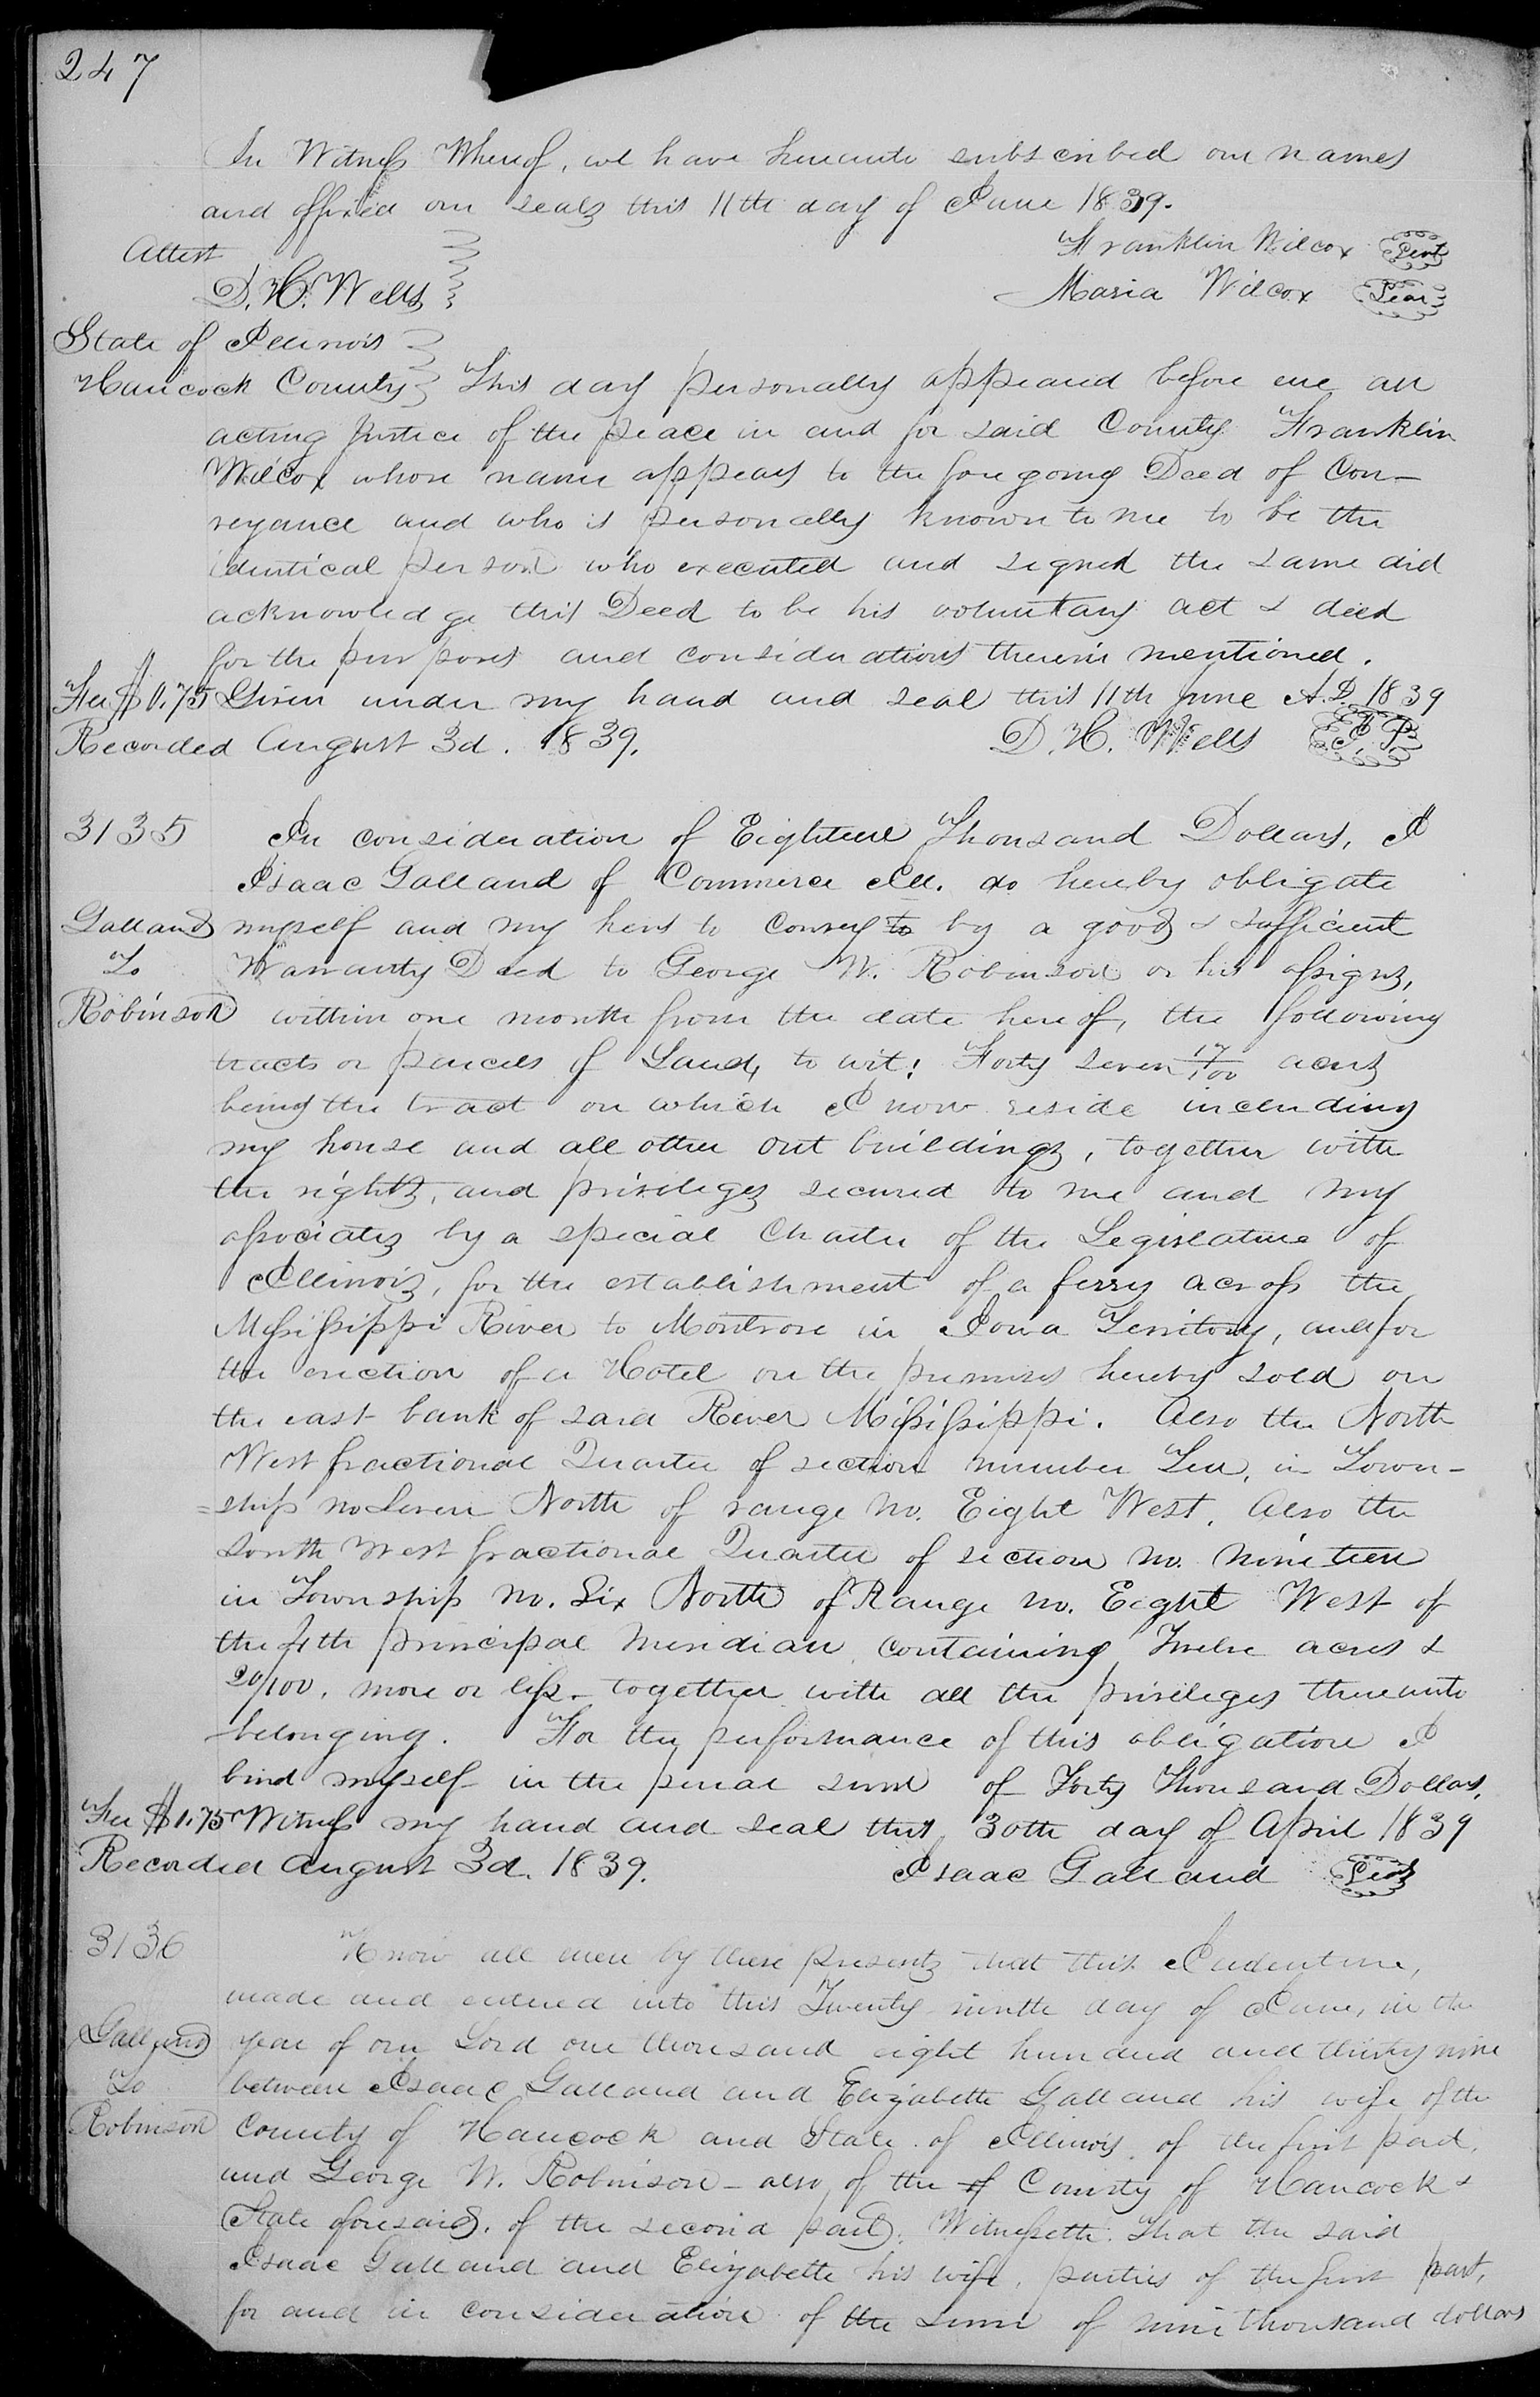 247
In Witness Whereof, we have hereunto subscribed our names
and affixed our seals this 11th day of June 1839.
Attest
D. H. Wells
Franklin Wilcox Seal
Maria Wilcox Seal
State of Illinois
Hancock County This day personally appeared before me an
acting Justice of the peace in and for said County Franklin
Wilcox whose name appears to the foregoing Deed of Con-
veyance and who is personally known to me to be the
identical person who executed and signed the same did
acknowledge this Deed to be his voluntary act & deed
for the purposes and considerations therein mentioned.
Fee $0.75 Given under my hand and seal this 11th June A.D. 1839
Recorded August 3d. 1839. D. H. Wells J. P.
3135 In consideration of Eighteen Thousand Dollars, I
Isaac Galland of Commerce Ill. do hereby obligate
Galland myself and my heirs to convey to by a good & sufficient
To Warranty Deed to George W. Robinson or his assigns,
Robinson within one month from the date hereof, the following
tracts or parcels of Land, to wit: Forty seven 17/100 acres
being the tract on which I now reside including
my house and all other out buildings, together with
the rights, and privileges secured to me and my
associates by a special Charter of the Legislature of
Illinois, for the establishment of a ferry across the
Mississippi River to Montrose in Iowa Territory, and for
the erection of a Hotel on the premises hereby sold on
the east bank of said River Mississippi. Also the North
West fractional Quarter of section number Ten, in Town-
=ship no Seven North of range No. Eight West. Also the
South West fractional Quarter of section No. nineteen
in Township No. Six North of Range No. Eight West of
the 4th principal Meridian containing Twelve acres &
20/100, more or less - together with all the privileges thereunto
belonging. For the performance of this obligation I
bind myself in the penal sum of Forty Thousand Dollars,
Fee $1.75 Witness my hand and seal this 30th day of April 1839
Recorded August 3d. 1839. Isaac Galland Seal
3136 Know all men by these presents that this Indenture,
made and entered into this Twenty ninth day of June, in the
Galland year of our Lord one thousand eight hundred and thirty nine
To between Isaac Galland and Elizabeth Galland his wife of the
Robinson County of Hancock and State of Illinois of the first part,
and George W. Robinson - also of the of County of Hancock &
State aforesaid, of the second part, Witnesseth That the said
Isaac Galland and Elizabeth his wife, parties of the first part,
for and in consideration of the sum of nine thousand dollars